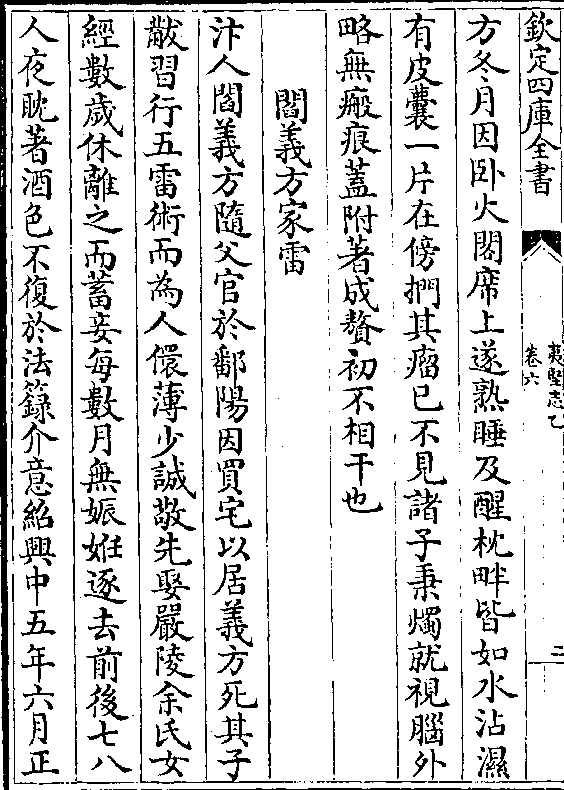 欽定四庫全書
夷堅志乙
卷六
二
方冬月因卧火閣席上遂熟睡及醒枕畔皆如水沾濕
有皮囊一片在傍捫其瘤已不見諸子秉燭就視腦外
略無瘢痕蓋附著成贅初不相干也
閻義方家雷
汴人閻義方隨父官於鄱陽因買宅以居義方死其子
黻習行五雷術而為人儇薄少誠敬先娶嚴陵余氏女
經數歲休離之而蓄妾每數月無娠姙逐去前後七八
人夜耽著酒色不復於法籙介意紹興中五年六月正